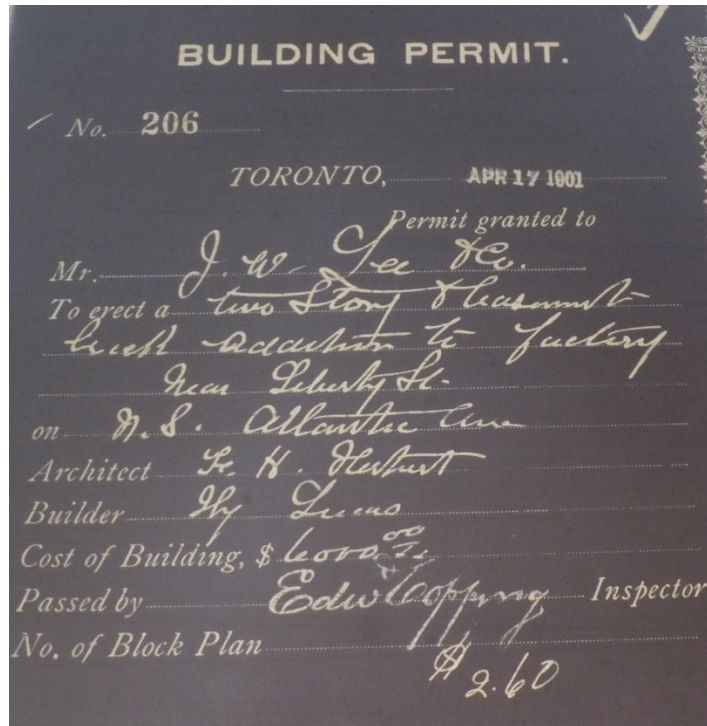 BUILDING PERMIT.
No. 206
TORONTO, APR 17 1901
Permit granted to
Mr. J. W. & Co.
To erect a two Story & basement
brick addition to factory
Near Liberty St.
on Atlantic Ave
Architect F. H. Herbert
Builder Hy Lucas
Cost of Building, $ 6000.00
Passed by Edw Copping Inspector
No. of Block Plan
$2.60